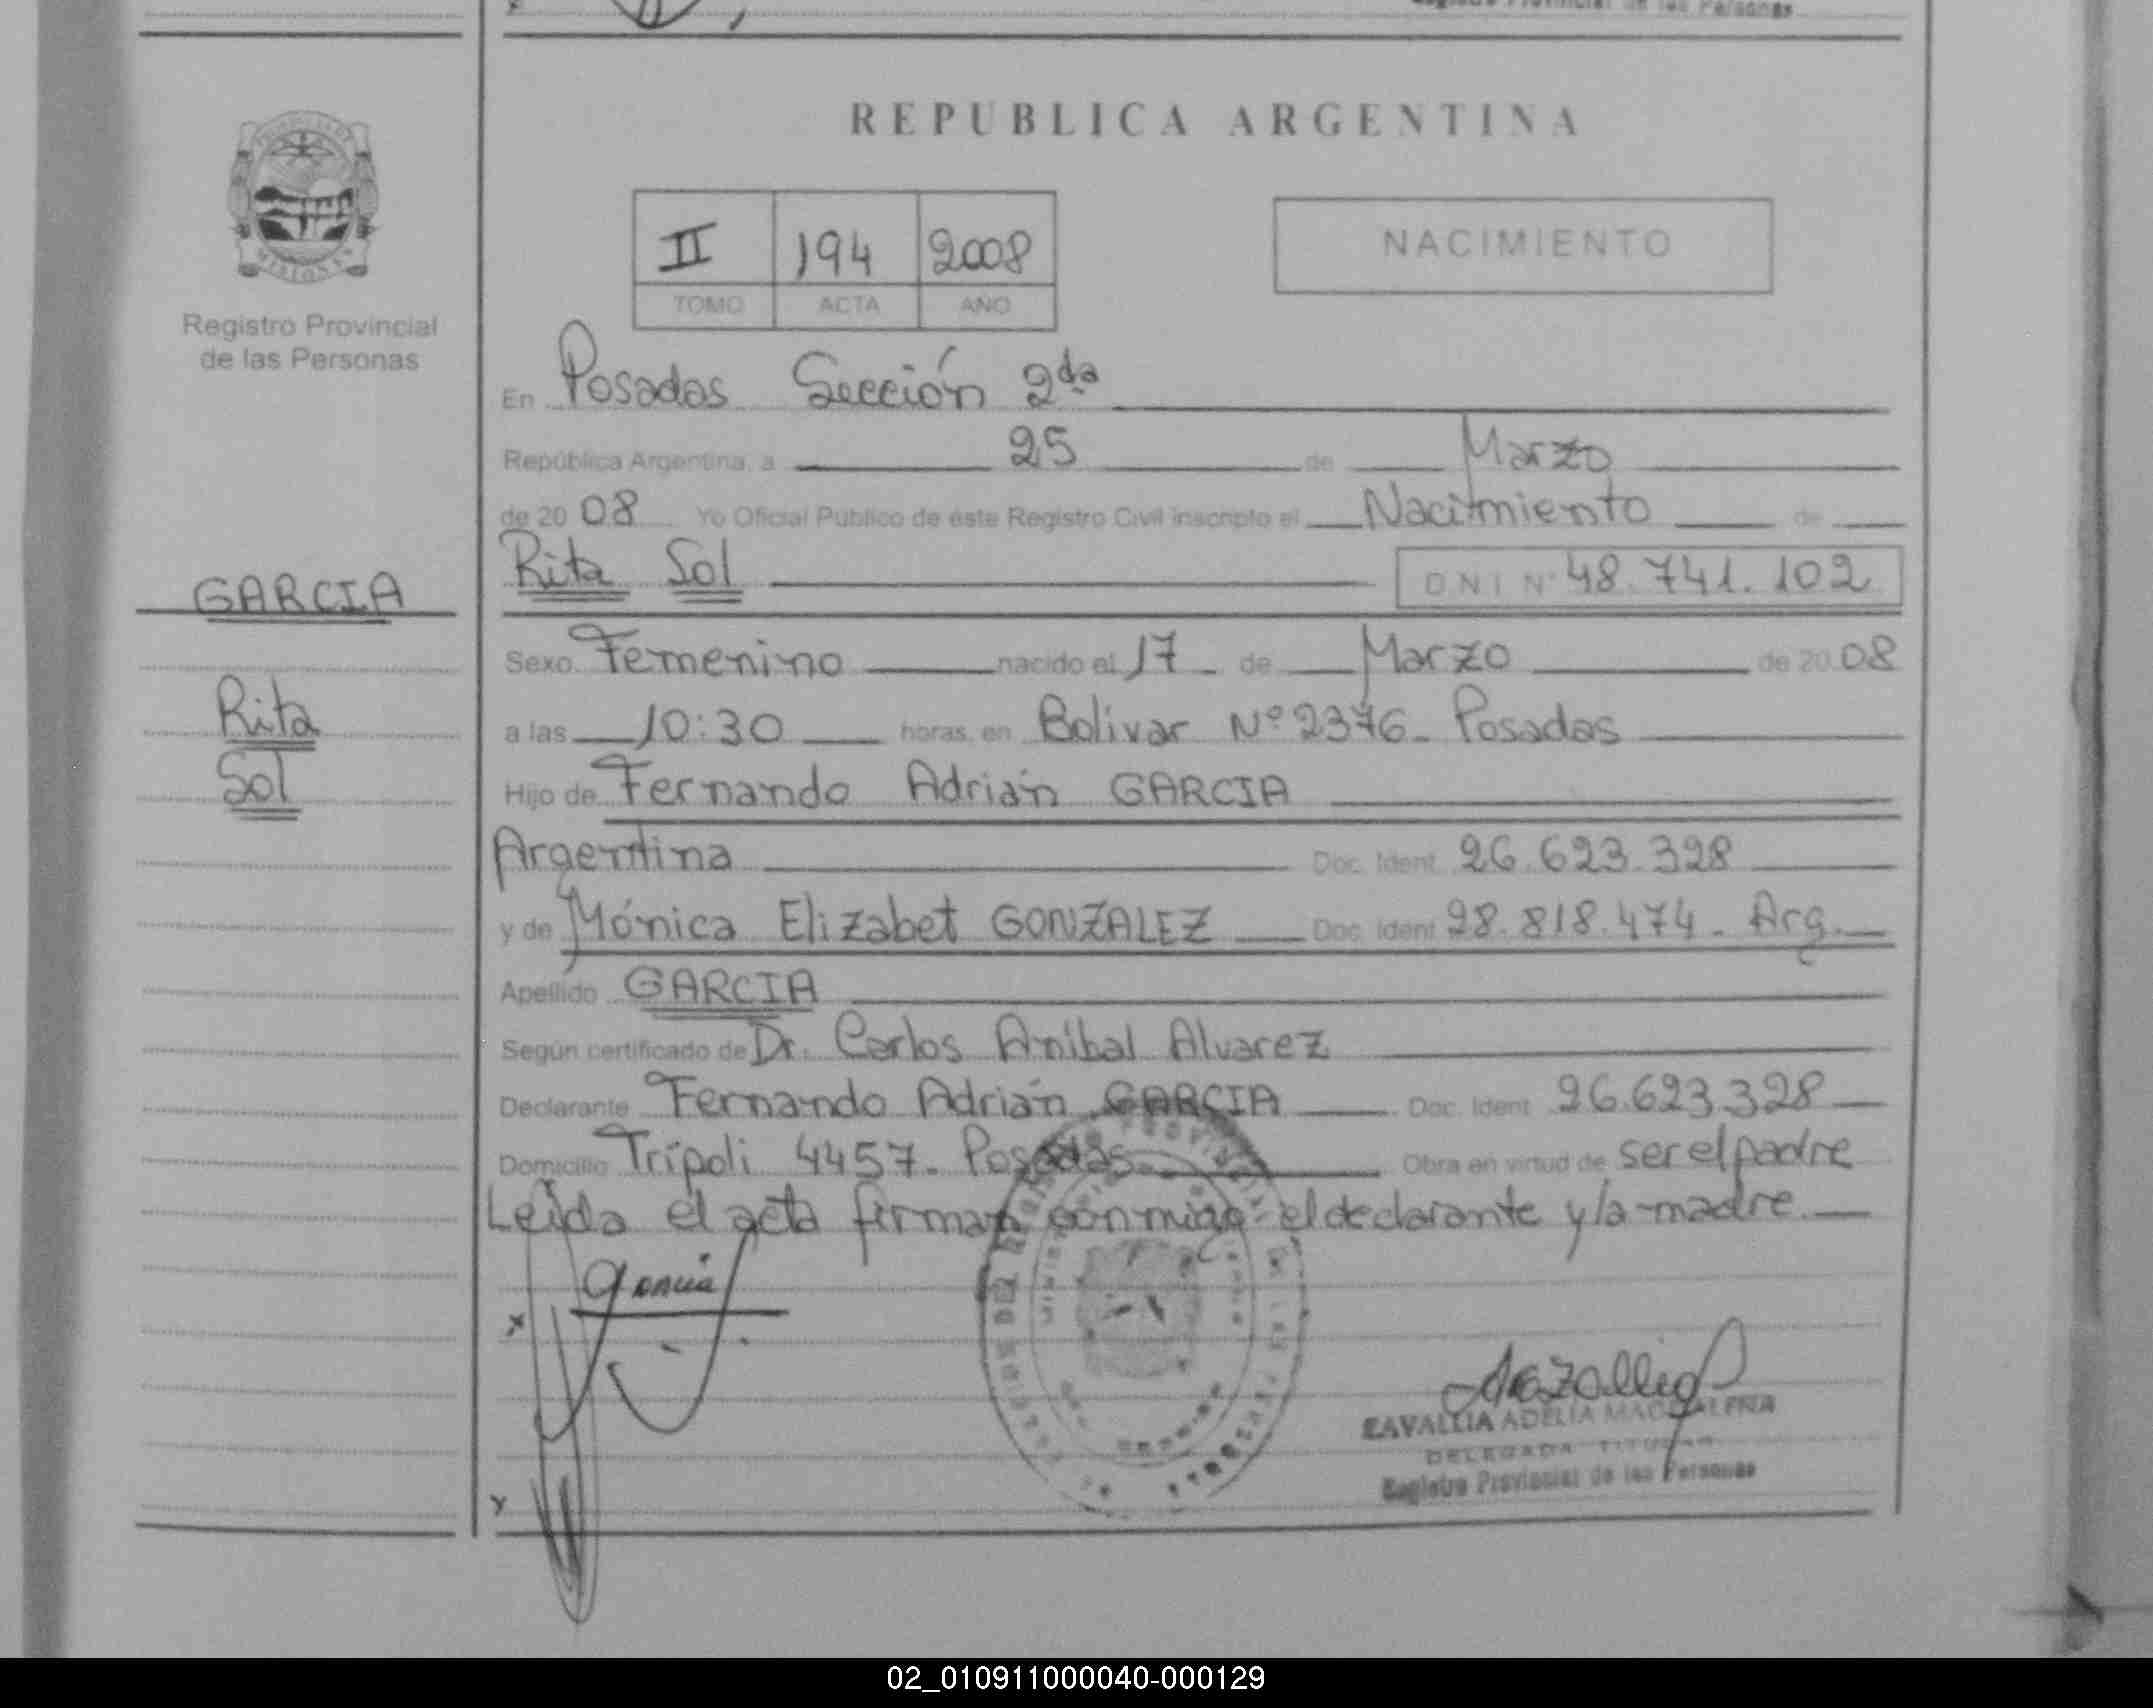 Registro Provincial de las Personas
REPUBLICA ARGENTINA
II 194 2008
TOMO ACTA AÑO
NACIMIENTO
Registro Provincial
de las Personas
GARCIA
Rita
Sol
En Posadas Sección 2da
República Argentina, a 25 de Marzo
de 20 08 Yo Oficial Público de éste Registro Civil inscripto el Nacimiento de
Rita Sol DNI Nº 48.741.102
Sexo Femenino nacido el 17 de Marzo de 20 08
a las 10:30 horas, en Bolivar Nº 2376 - Posadas
Hijo de Fernando Adrián GARCIA
Argentina Doc. Ident. 26.623.328
y de Mónica Elizabet GONZALEZ Doc. Ident. 28.818.474 - Arg.
Apellido GARCIA
Según certificado de Dr. Carlos Aníbal Alvarez
Declarante Fernando Adrián GARCIA Doc. Ident. 26.623.328
Domicilio Trípoli 4457 - Posadas Obra en virtud de ser el padre
Leída el acta firman conmigo el declarante y la madre.
x
x
ZAVALLIA ADELIA MAGDALENA
DELEGADA TITULAR
Registro Provincial de las Personas
02_010911000040-000129